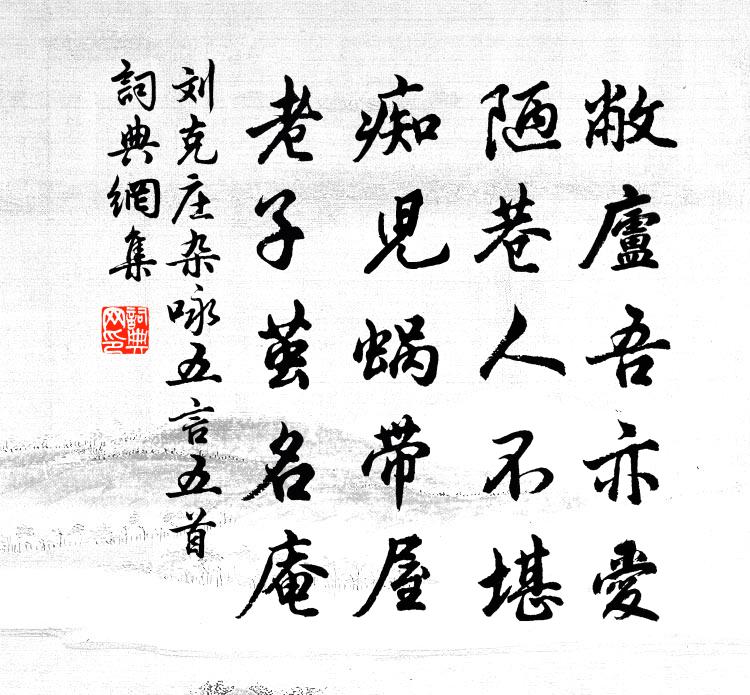 敝廬吾亦愛
陋巷人不堪
痴児蝸带屋
老子茧名庵
刘克庄杂咏五言五首
詞典網集
詞典网印